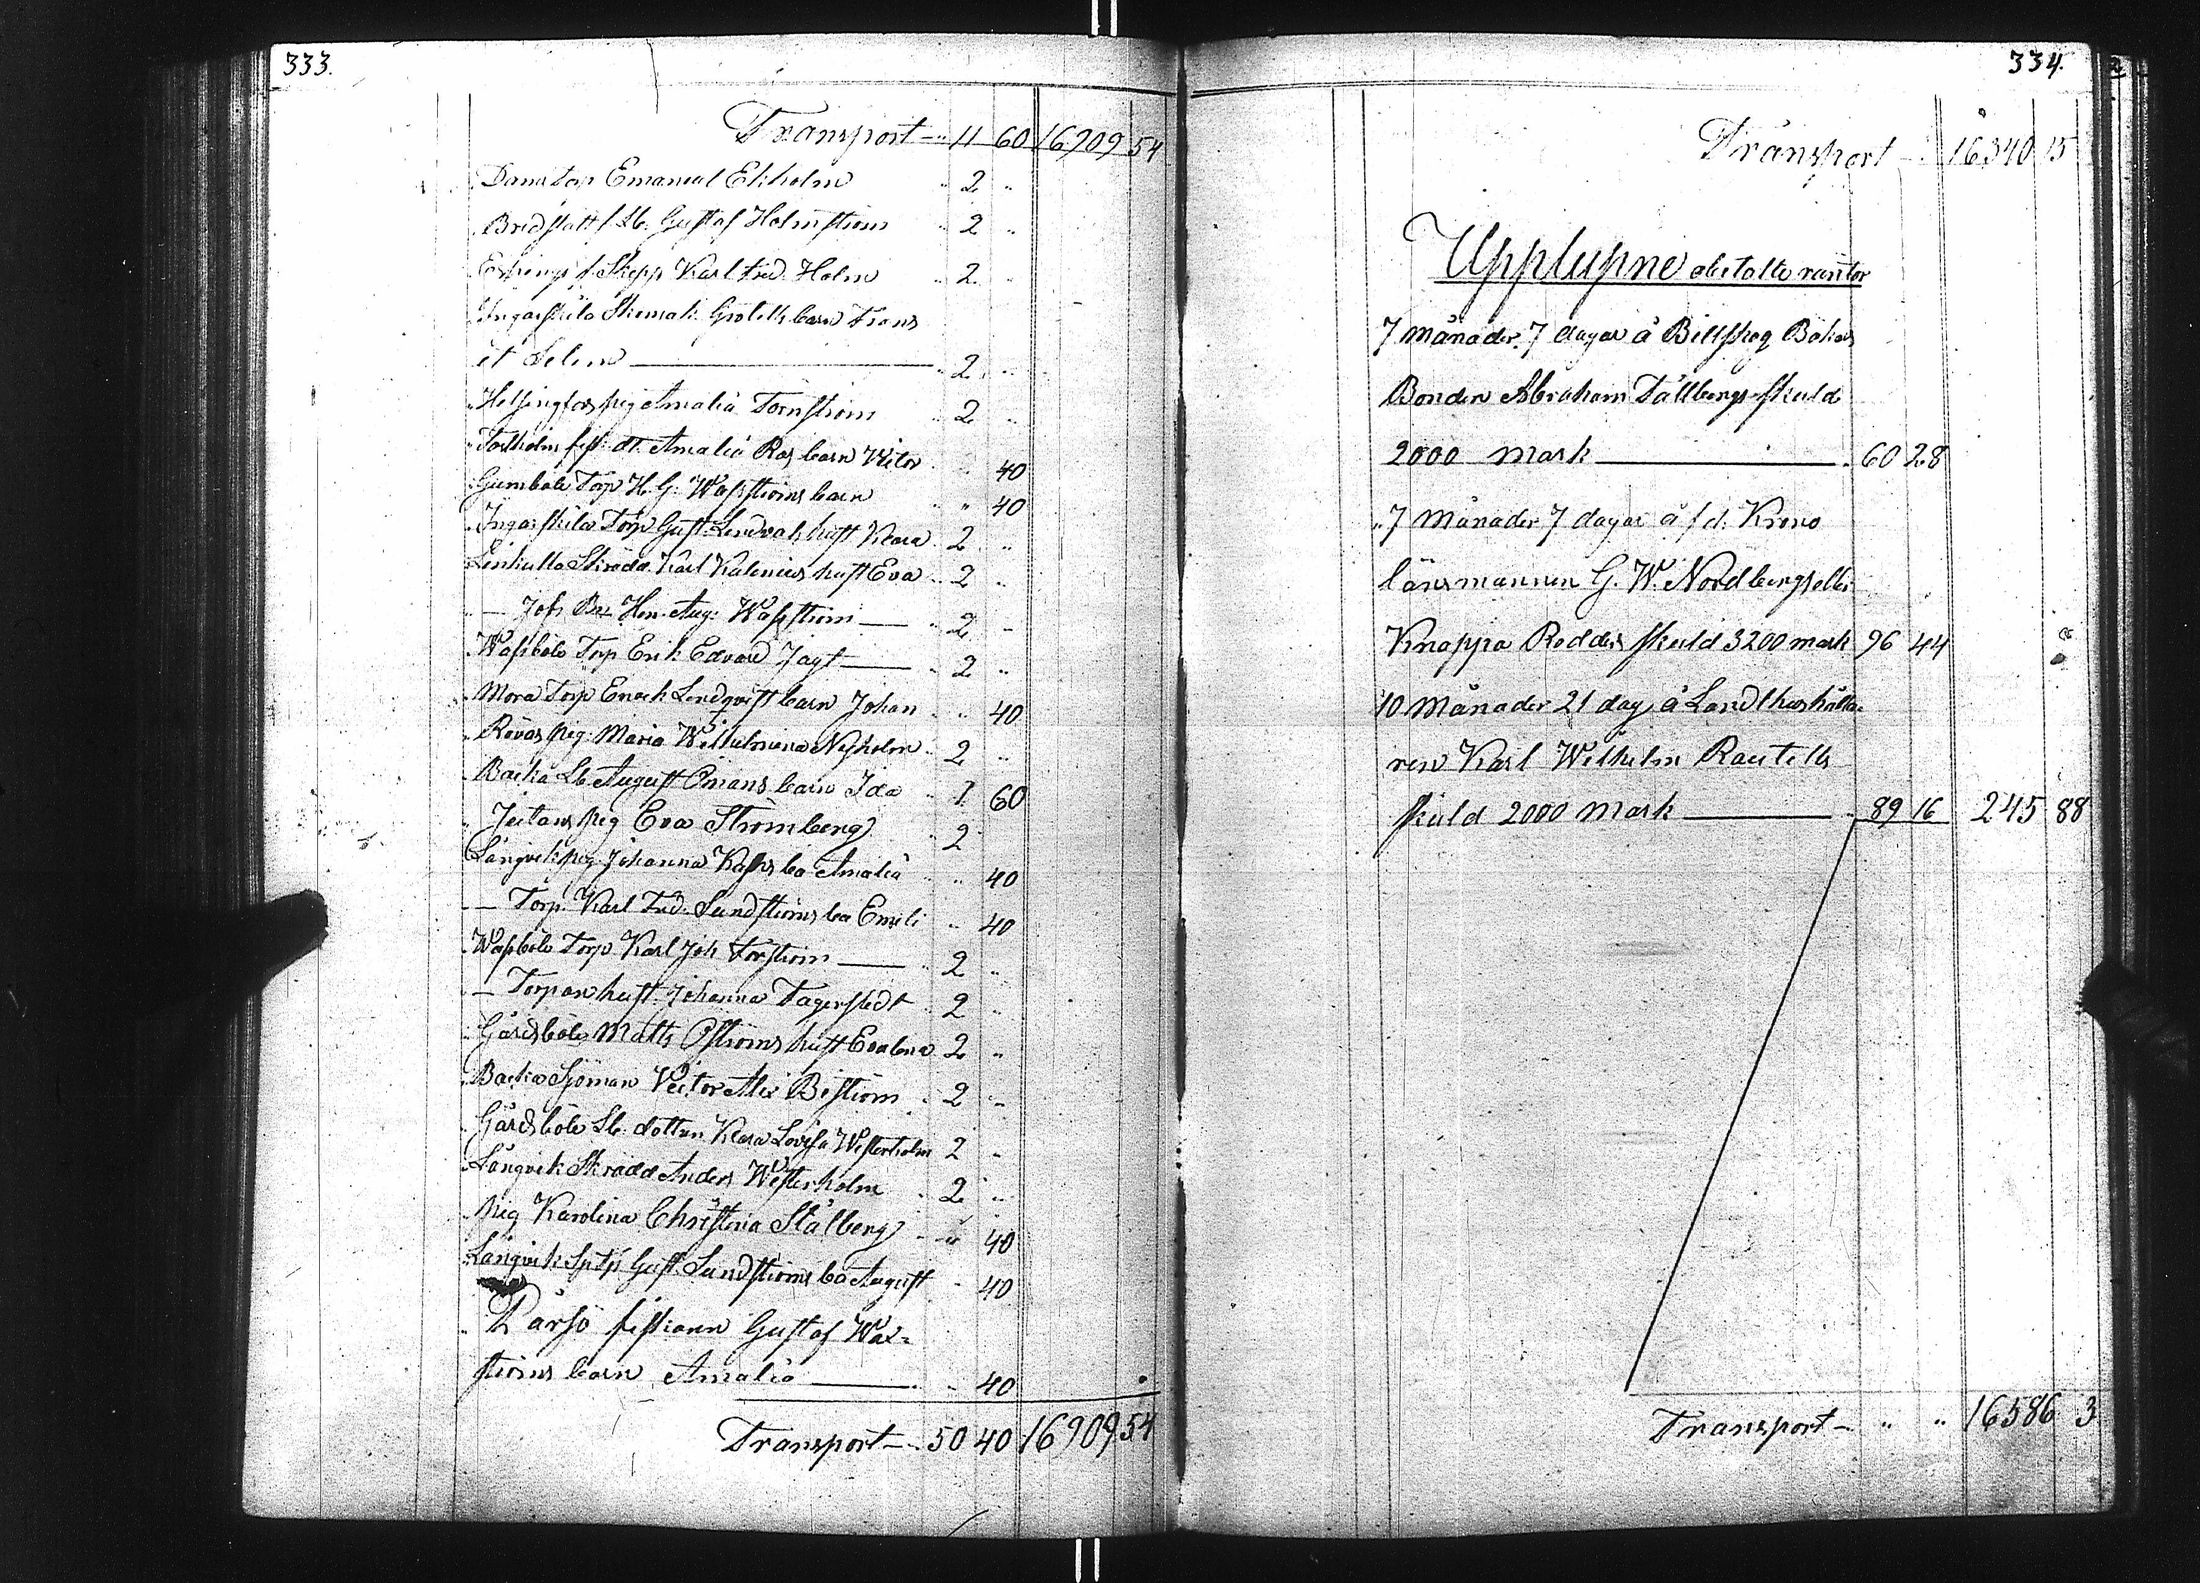 333.
Transport — " 11 60 16909 54
Dams Torp Emanuel Ekholm " 2 "
Bredslätt f Sb: Gustaf Holmström " 2 "
Esbings f. Skepp Karl Fred. Holm " 2 "
Ingarskila Skomak: barn Frans
et Selim — " 2 "
Helsingfors pig Amalia Tornström " 2 "
Torsholm fisk: dr. Amalia Ros barn Viktor " " 40
Gumböle Torp H. G. Wasströms barn " " 40
Ingarskila Torp Gust: Lindvals hust Klara " 2 "
Linkulla Skrädd. Karl Kalenius hust Eva " 2 "
— Joh: Hen. Aug: Wasström — " 2 "
Wassböle Torp Erik Edvard Jagt — " 2 "
Mora Torp Enok Lindqvist barn Johan " " 40
Rövas pig: Maria Wilhelmina Nyholm " 2 "
Backa Sb August Ömans barn Ida " 1 60
Jutans pig Eva Strömberg " 2
Långvik pig Johanna ba Amalia " " 40
— Torp. Karl Fred. Sundströms ba Emeli " 40
Wassböle Torp Karl Joh Forström — " 2 "
— Torparhust. Johanna Fagerstedt " 2 "
Gårdsböle Matts Öströms hust Evalena 2 "
Backa Sjöman Victor Alex Biström " 2 "
Gårdsböle Sb. dottren Klara Lovisa Westerholm 2 "
Långvik Skrädd Anders Westerholm " 2 "
pig Karolina Christina Stålberg " " 40
Långvik Sptp Gust. Sundströms ba August " 40
Pärsö fiskaren Gustaf Wa=
ströms barn Amalia — " 40
Transport — " 50 40 16909 54
334.
Transport — " 16340 15
Upplupne obetalte räntor
7 Månader 7 dagar å Billskog Bökars
Bonden Abraham Tallbergs skuld
2000 mark — " 60 28
" 7 Månader 7 dagar å f. d. Krono
länsmannen G. W. Nordbergs eller
Knappa Rodders skuld 3200 mark 96 44
10 Månader 21 dag å Landthushålla
ren Karl Wilhelm Rautells
skuld 2000 Mark — " 89 16 245 88
Transport — " " 16586 3